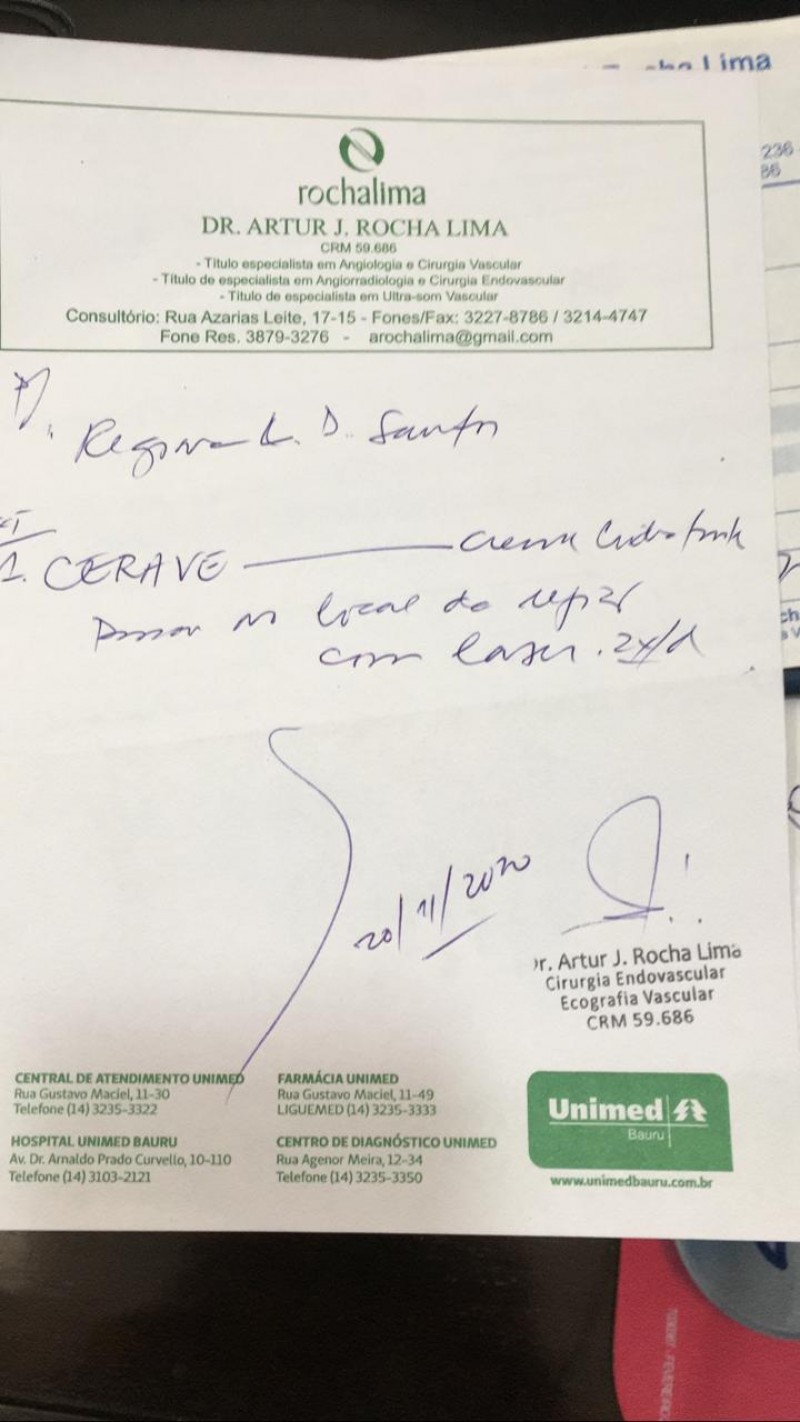 Lima
rochalima
DR. ARTUR J. ROCHA LIMA
CRM 59.686
- Título especialista em Angiologia e Cirurgia Vascular
- Título de especialista em Angiorradiologia e Cirurgia Endovascular
- Título de especialista em Ultra-som Vascular
Consultório: Rua Azarias Leite, 17-15 - Fones/Fax: 3227-8786 / 3214-4747
Fone Res. 3879-3276 - arochalima@gmail.com
236
86
P/
Regina L. D. Santos
1. CERAVE creme hidratante
Passar no local do
com laser. 2x/d
20/11/2020
Dr. Artur J. Rocha Lima
Cirurgia Endovascular
Ecografia Vascular
CRM 59.686
CENTRAL DE ATENDIMENTO UNIMED
Rua Gustavo Maciel, 11-30
Telefone (14) 3235-3322
FARMÁCIA UNIMED
Rua Gustavo Maciel, 11-49
LIGUEMED (14) 3235-3333
HOSPITAL UNIMED BAURU
Av. Dr. Arnaldo Prado Curvello, 10-110
Telefone (14) 3103-2121
CENTRO DE DIAGNÓSTICO UNIMED
Rua Agenor Meira, 12-34
Telefone (14) 3235-3350
Unimed
Bauru
www.unimedbauru.com.br